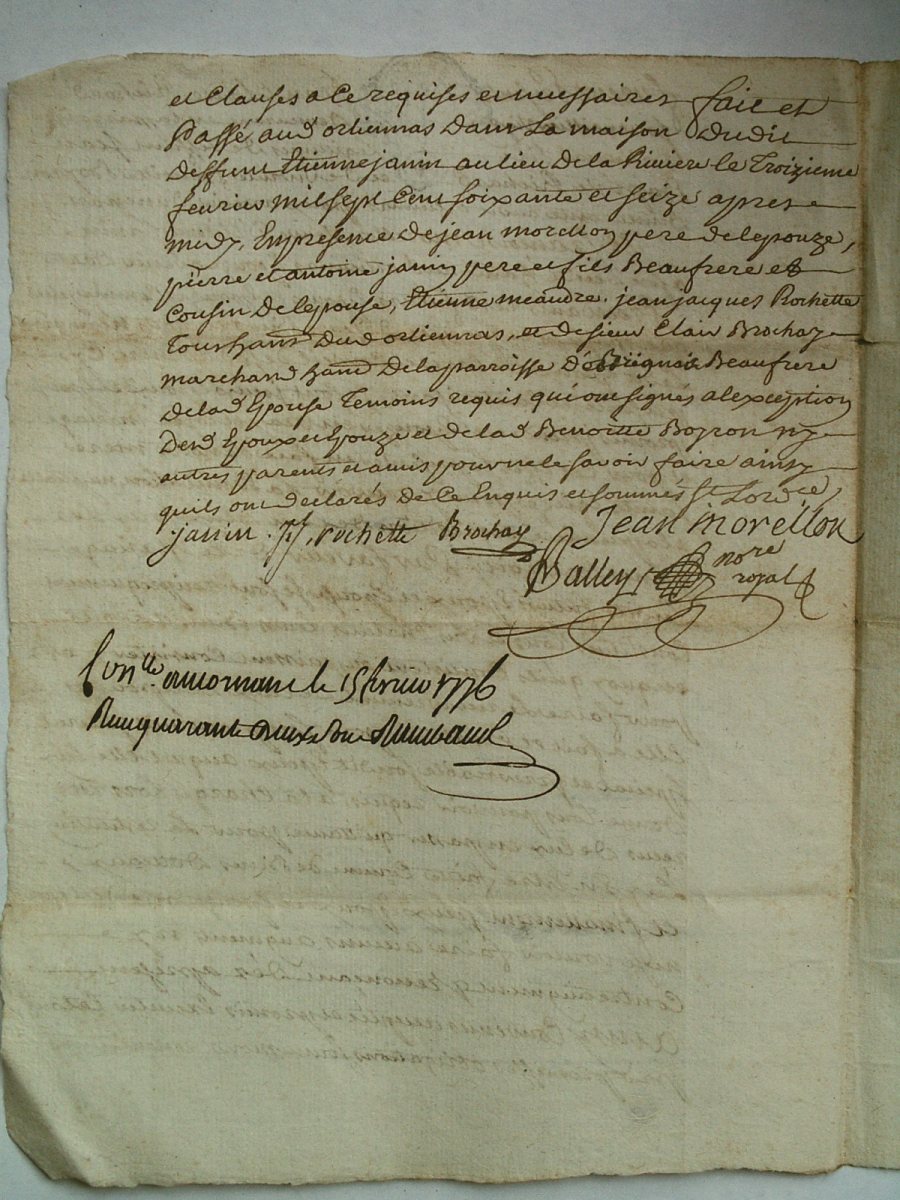 et Clauses a Ce requises et necessaires fait et
Passé aud orliennas Dans La maison Dudit
Deffunt Etienne janin au lieu De la Riviere le Troizieme
fevrier mil sept Cent soixante et seize apres
midy, En presence De jean morellon pere de lepouze,
pierre et antoine janin pere et fils Beaufrere et
Cousin De lepouse, Etienne meandre, jean jacques Rochette
Tous hants Dud orliennas, et de sieur Clair Brochay
marchand hant De la parroisse de Brignais Beaufrere
De lad Epouse Temoins requis qui ont signés a lexception
Desd Epoux et Epouze et de lad Benoitte Boyron ny
autres parents et amis pour ne le savoir faire ainsy
quils ont declarés De Ce Enquis et sommés St Lordce
janin . JJ, rochette Brochay Jean morellon
Balley nore
royal
Conlle a mornant le 15 fevrier 1776
Reçu quarante deux s Rimbaud